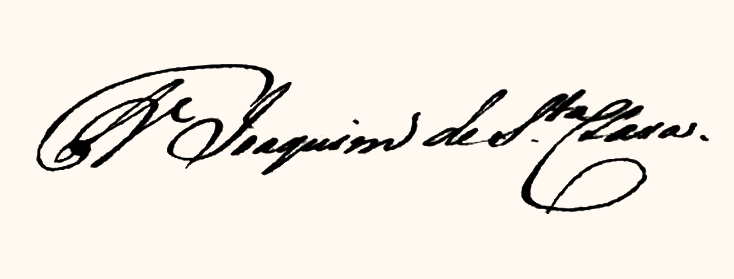 Fr. Joaquim de S.ta Clara.